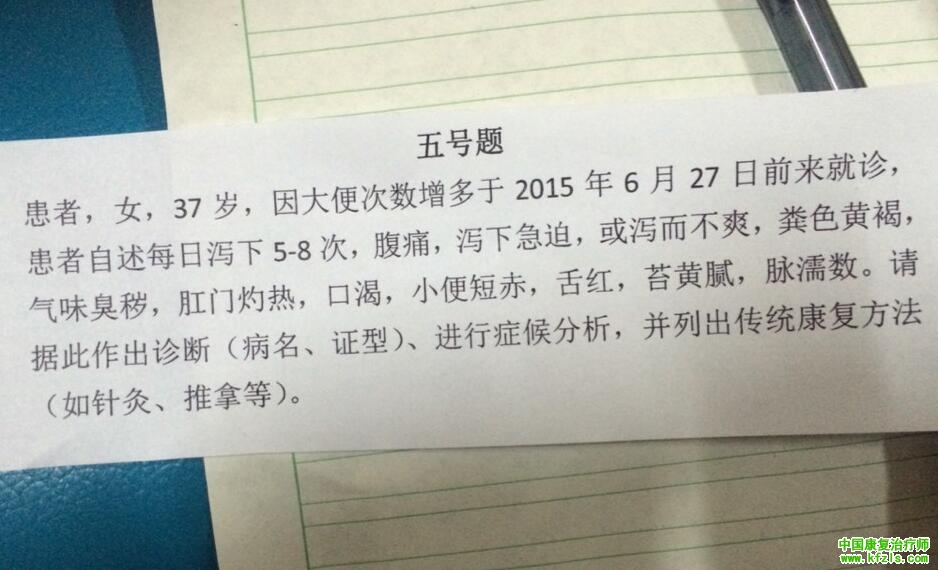 五号题
患者，女，37 岁，因大便次数增多于 2015 年 6 月 27 日前来就诊，
患者自述每日泻下 5-8 次，腹痛，泻下急迫，或泻而不爽，粪色黄褐，
气味臭秽，肛门灼热，口渴，小便短赤，舌红，苔黄腻，脉濡数。请
据此作出诊断（病名、证型）、进行症候分析，并列出传统康复方法
（如针灸、推拿等）。
中国康复治疗师
www.kfzls.com